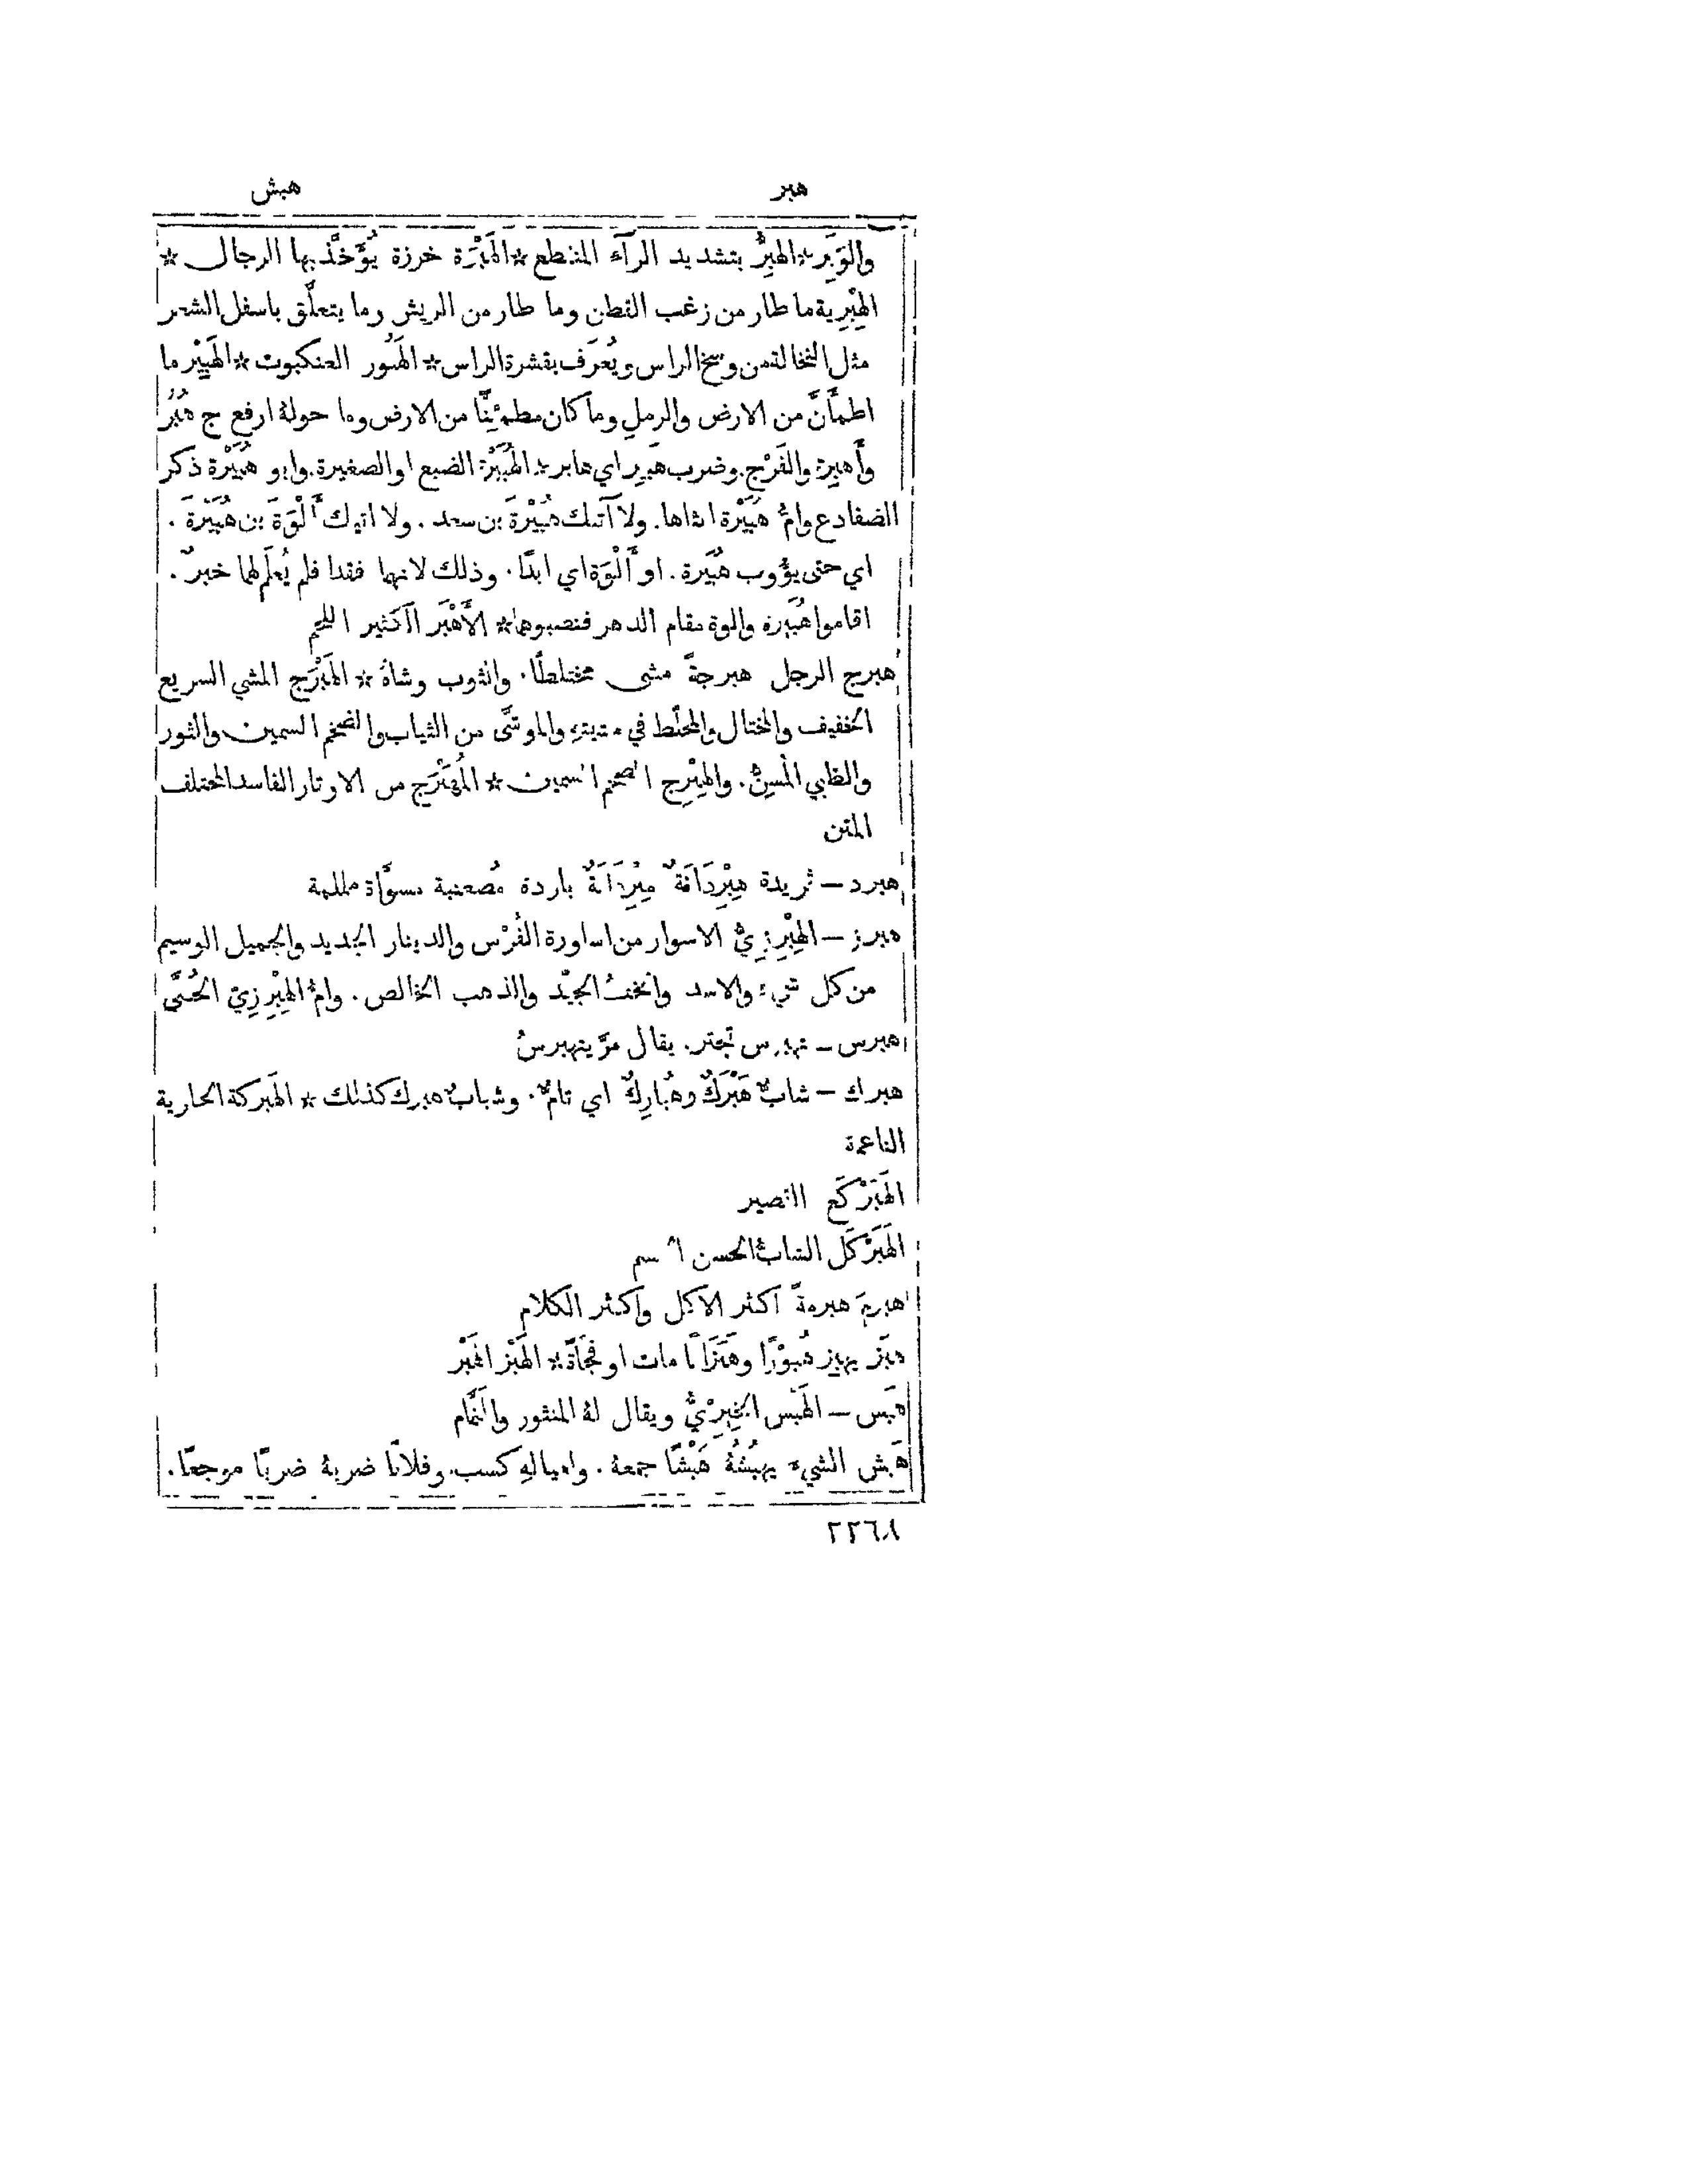 هبر هبش
والوَبِر * الهِبِرُّ بتشديد الرآء المنقطع * الهَبْرَة خرزة يُؤَخَّذ بها الرجال *
الهِبْرِية ما طار من زغب القطن وما طار من الريش وما يتعلَّق باسفل الشعر
مثل النخالة من وسخ الراس ويُعرَف بقشرة الراس * الهَبُور العنكبوت * الهَبِيْر ما
اطمأَنَّ من الارض والرمل وما كان مطمئِنًّا من الارض وما حولهُ ارفع ج هُبُرٌ
وأَهبِرة والفَرْج. وضرب هَبِير اي هابر * الهُبَيْرَة الضبع او الصغيرة. وابو هُبَيْرَة ذكر
الضفادع وامُّ هُبَيْرَة انثاها. ولا آتيك هُبَيْرَةَ بن سعد. ولا اتيك أَلْوَةَ بن هُبَيْرَةَ.
اي حتى يؤُوب هُبَيرة. او أَلْوَة اي ابدًا. وذلك لانهما فقدا فلم يُعلَم لهما خبرٌ.
اقاموا هُبَيرة والوة مقام الدهر فنصبوهما * الأَهْبَر الكثير اللحم
هبرج الرجل هبرجةً مشى مختلطًا. والثوب وشاهُ * الهَبْرَج المشي السريع
الخفيف والمختال والمخلّط في مشيتهِ والموشَّى من الثياب والضخم السمين والثور
والظبي المُسِنُّ. والهِبْرِج الضخم السمين * المُهَبْرَج من الاوتار الفاسد المختلف
المتن
هبرد – ثريدة هِبْرِدَانَةٌ مِبْرِدَانَةٌ باردة مُصعنبة مسوَّاة مململة
هبرز – الهِبْرِزِيُّ الاسوار من اساورة الفُرْس والدينار الجديد والجميل الوسيم
من كل شيء والاسد والخفُّ الجيّد والذهب الخالص. وامُّ الهِبْرِزِيّ الحُمَّى
هبرس – تهبرس تبختر. يقال مرَّ يتهبرسُ
هبرك – شابٌّ هَبْرَكٌ وهُبَارِكٌ اي تامٌّ. وشبابٌ هبرك كذلك * الهَبركة الجارية
الناعمة
الهَبَرْكَع القصير
الهَبَرْكَل الشابُّ الحسن
هبرمَ هبرمةً اكثر الاكل واكثر الكلام
هبَز يهبِز هُبوْزًا وهَبَزَانًا مات او فجأَةً * الهَبْز الهَبْر
هبَس – الهَبَس الخِيرِيُّ ويقال لهُ المنثور والنَّمَّام
هَبَش الشيءَ يهبُشُهُ هَبْشًا جمعهُ. ولعيالهِ كسب. وفلانًا ضربهُ ضربًا موجعًا.
٢٢٦٨